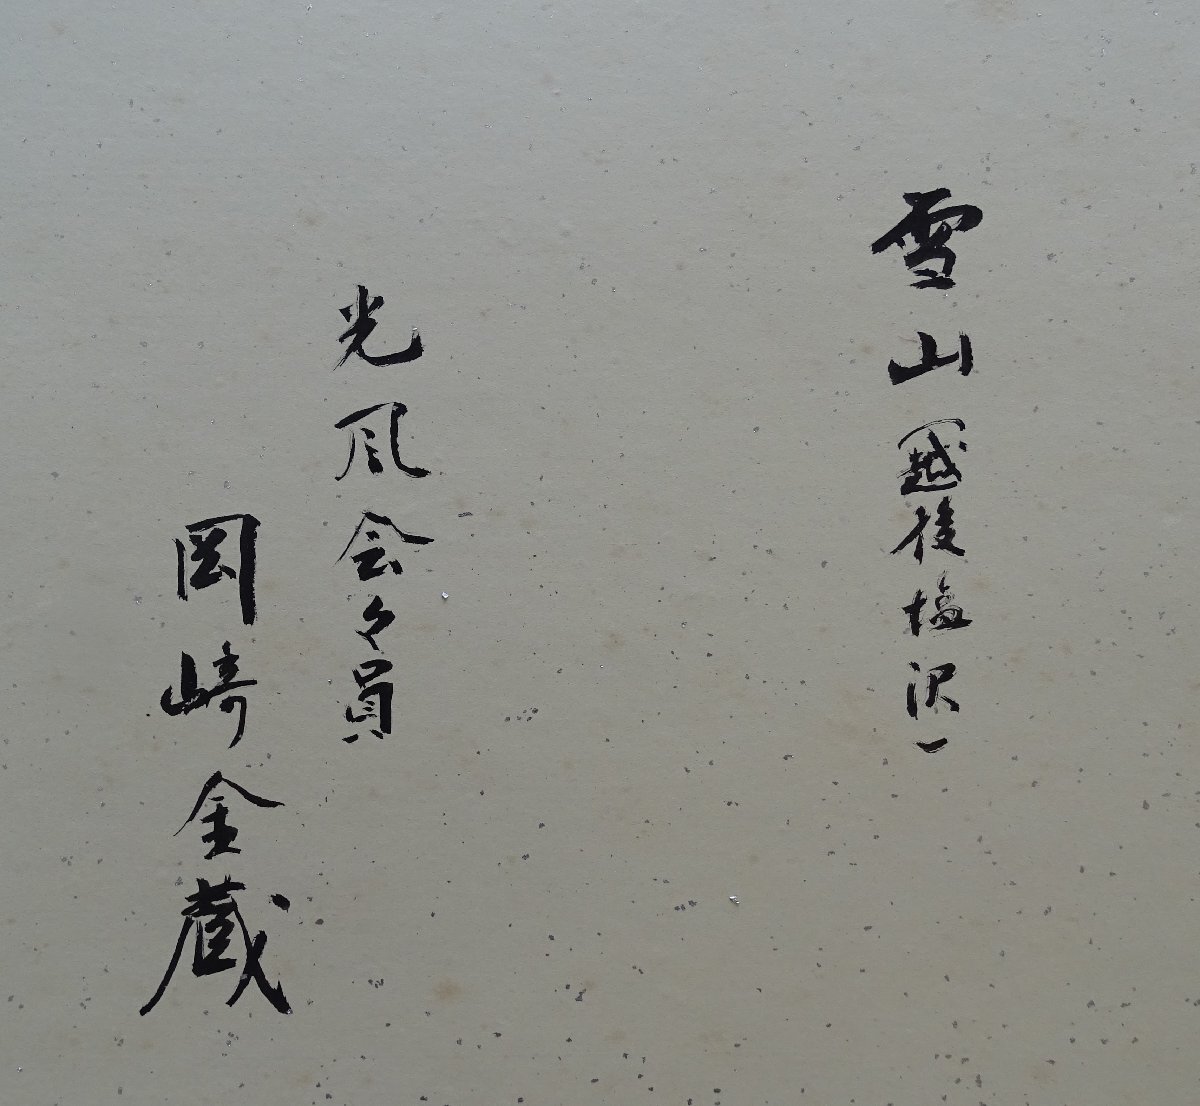 雪山（越後塩沢）
光風会々員
岡崎金蔵